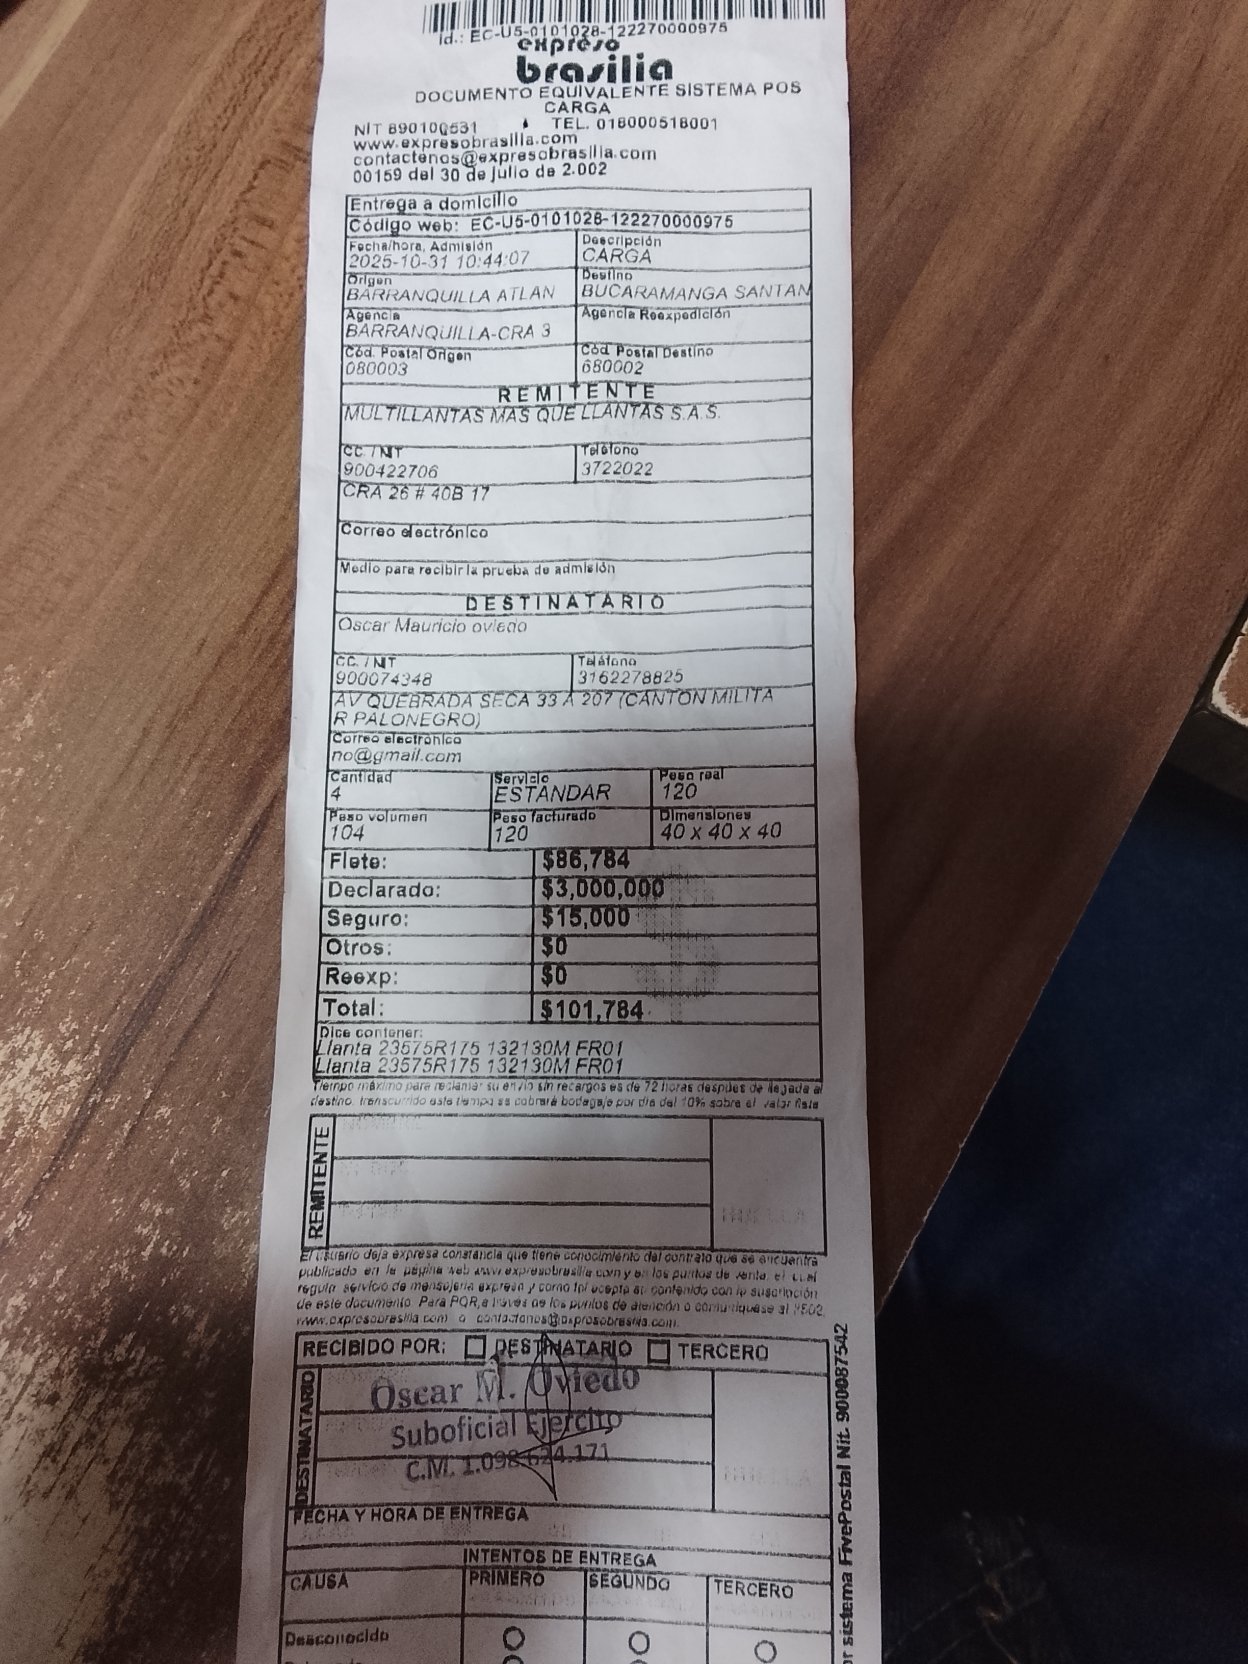 Id.: EC-U5-0101028-122270000975
expreso
brasilia
DOCUMENTO EQUIVALENTE SISTEMA POS
CARGA
NIT 890100531 TEL. 018000518001
www.expresobrasilia.com
contactenos@expresobrasilia.com
00159 del 30 de julio de 2.002
Entrega a domicilio
Código web: EC-U5-0101028-122270000975
Fecha/hora, Admisión Descripción
2025-10-31 10:44:07 CARGA
Origen Destino
BARRANQUILLA ATLAN BUCARAMANGA SANTAN
Agencia Agencia Reexpedición
BARRANQUILLA-CRA 3
Cód. Postal Origen Cód. Postal Destino
080003 680002
REMITENTE
MULTILLANTAS MAS QUE LLANTAS S.A.S.
CC. / NIT Teléfono
900422706 3722022
CRA 26 # 40B 17
Correo electrónico
Medio para recibir la prueba de admisión
DESTINATARIO
Oscar Mauricio oviedo
CC. / NIT Teléfono
900074348 3162278825
AV QUEBRADA SECA 33 A 207 (CANTON MILITA
R PALONEGRO)
Correo electrónico
no@gmail.com
Cantidad Servicio Peso real
4 ESTANDAR 120
Peso volumen Peso facturado Dimensiones
104 120 40 x 40 x 40
Flete: $86,784
Declarado: $3,000,000
Seguro: $15,000
Otros: $0
Reexp: $0
Total: $101,784
Dice contener:
Llanta 23575R175 132130M FR01
Llanta 23575R175 132130M FR01
Tiempo máximo para reclamar su envío sin recargos es de 72 horas después de llegada al
destino, transcurrido este tiempo se cobrará bodegaje por día del 10% sobre el valor flete
REMITENTE
HUELLA
El usuario deja expresa constancia que tiene conocimiento del contrato que se encuentra
publicado en la página web www.expresobrasilia.com y en los puntos de venta, el cual
regula servicio de mensajería expresa y como tal acepta su contenido con la suscripción
de este documento. Para PQR, a través de los puntos de atención o comuníquese al #502
www.expresobrasilia.com o contactenos@expresobrasilia.com.
RECIBIDO POR: DESTINATARIO TERCERO
DESTINATARIO
Oscar M. Oviedo
Suboficial Ejercito
C.M. 1.098.624.171
HUELLA
FECHA Y HORA DE ENTREGA
INTENTOS DE ENTREGA
CAUSA PRIMERO SEGUNDO TERCERO
Desconocido
or sistema FivePostal Nit. 900087542